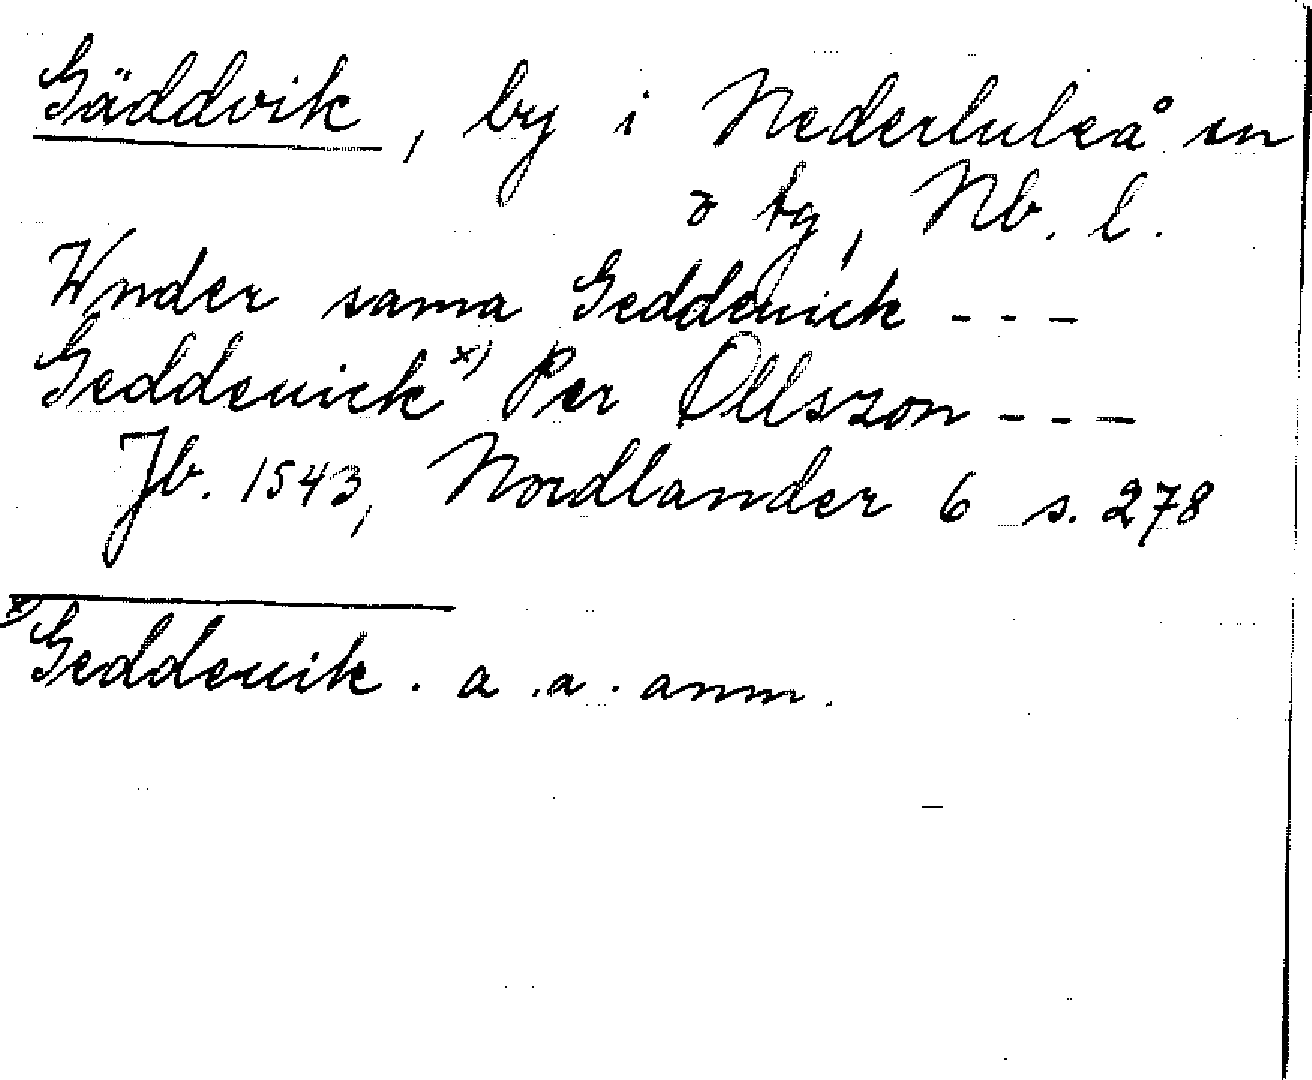 Gäddvik, by i Nederluleå sn
o tg, Nb. l.
Wnder sama Geddeuick - - -
Geddeuick x) Per Ollsson - - -
Jb. 1543, Nordlander 6 s. 278
x) Geddeuik. a.a. anm.